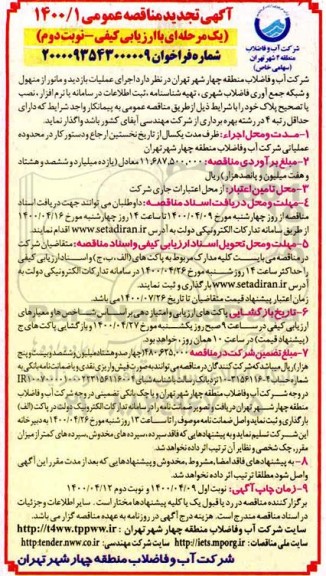 آگهی تجدید مناقصه عمومی ۱۴۰۰/۱
(یک مرحله ای با ارزیابی کیفی – نوبت دوم)
شماره فراخوان ۲۰۰۰۰۹۳۵۴۳۰۰۰۰۰۹
شرکت آب و فاضلاب
منطقه ۴ شهر تهران
(سهامی خاص)
شرکت آب و فاضلاب منطقه چهار شهر تهران در نظر دارد اجرای عملیات بازدید و مانور از منهول
و شبکه جمع آوری فاضلاب شهری ، تهیه شناسنامه ، ثبت اطلاعات در سامانه یا نرم افزار ، نصب
یا تصحیح پلاک خود را با شرایط ذیل از طریق مناقصه عمومی به پیمانکار واجد شرایط که دارای
حداقل رتبه ۴ در رشته بهره برداری از شرکت مهندسی آبفای کشور باشد واگذار نماید.
۱-مدت و محل اجراء: ظرف مدت یکسال از تاریخ نخستین ارجاع و دستور کار در محدوده
عملیاتی شرکت آب و فاضلاب منطقه ۴ شهر تهران
۲-مبلغ برآوردی مناقصه: ۱۱,۶۸۷,۵۰۰,۰۰۰ معادل (یازده میلیارد و ششصد و هشتاد
و هفت میلیون و پانصد هزار) ریال
۳-محل تامین اعتبار: از محل اعتبارات جاری شرکت
۴-مهلت و محل دریافت اسناد مناقصه: داوطلبان می توانند جهت دریافت اسناد
مناقصه از روز چهارشنبه مورخ ۱۴۰۰/۰۴/۰۹ تا ساعت ۱۴ روز چهارشنبه مورخ ۱۴۰۰/۰۴/۱۶
از طریق سامانه تدارکات الکترونیکی دولت به آدرس www.setadiran.ir اقدام نمایند.
۵-مهلت و محل تحویل اسناد ارزیابی کیفی و اسناد مناقصه: متقاضیان شرکت
در مناقصه می بایست کلیه مدارک مربوط به پاکت های (الف، ب، ج) و اسناد ارزیابی کیفی
را حداکثر ساعت ۱۴ روز شنبه مورخ ۱۴۰۰/۰۴/۲۶ در سامانه تدارکات الکترونیکی دولت به
آدرس www.setadiran.ir بارگذاری و ثبت نمایند.
زمان اعتبار پیشنهاد قیمت متقاضیان تا تاریخ ۱۴۰۰/۰۷/۲۶ می باشد.
۶-تاریخ بازگشایی: پاکت های ارزیابی و امتیازدهی بر اساس شاخص ها و معیارهای
ارزیابی کیفی در ساعت ۹ صبح روز یکشنبه مورخ ۱۴۰۰/۰۴/۲۷ و بازگشایی پاکت های ج
(پیشنهاد قیمت) در ساعت ۱۰ همان روز خواهد بود.
۷-مبلغ تضمین شرکت در مناقصه: ۴۸۰,۶۲۵,۰۰۰ (چهارصد و هشتاد میلیون و ششصد و بیست و پنج
هزار) ریال میباشد که شرکت کنندگان در مناقصه می توانند به صورت فیش واریزی نقدی یا ضمانت نامه بانکی به
در وجه شرکت آب و فاضلاب منطقه چهار شهر تهران و یا چک بانکی تضمینی در وجه شرکت آب و فاضلاب
منطقه چهار شهر تهران
این شرکت تسلیم نماید و به پیشنهادهایی که فاقد سپرده، سپرده های مخدوش، سپرده های کمتر از میزان
مقرر، چک شخصی و نظایر آن ترتیب اثر داده نخواهد شد.
۸-به پیشنهادهای فاقد امضا، مشروط، مخدوش و پیشنهادهایی که بعد از مدت مقرر این آگهی
واصل شود مطلقا ترتیب اثر داده نخواهد شد.
۹-زمان چاپ آگهی: نوبت اول ۱۴۰۰/۰۴/۰۹ و نوبت دوم ۱۴۰۰/۰۴/۱۲
برگزار کننده مناقصه در رد یا قبول یک یا کلیه پیشنهادها مختار است. سایر اطلاعات و جزئیات
در اسناد مناقصه مندرج است. هزینه درج آگهی در روزنامه به عهده مناقصه گزار می باشد.
سایت شرکت آب و فاضلاب منطقه چهار شهر تهران: http://t4ww.tppww.ir
سایت ملی مناقصات: http://iets.mporg.ir سایت شرکت مهندسی: http:tender.nww.co.ir
شرکت آب و فاضلاب منطقه چهار شهر تهران